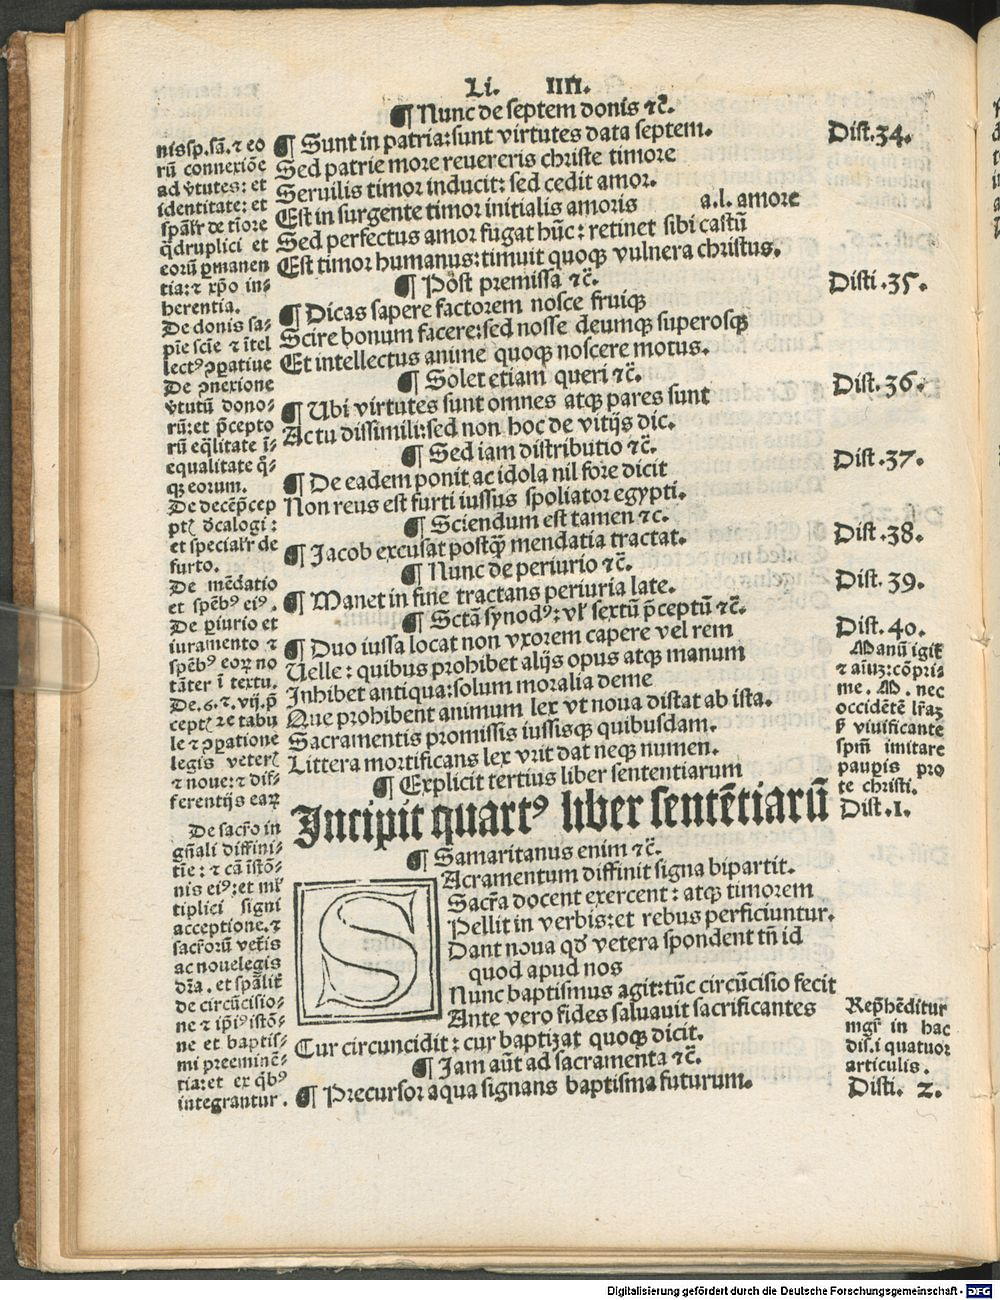 Li. IIII.
¶ Nunc de septem donis ⁊c̃.
¶ Sunt in patria: sunt virtutes data septem.
Sed patrie more reuereris christe timore
Seruilis timor inducit: sed cedit amor.
Est in surgente timor initialis amoris a.l. amore
Sed perfectus amor fugat hũc: retinet sibi castũ
Est timor humanus: timuit quoqꝫ vulnera christus.
¶ Pòst premissa ⁊c̃.
¶ Dicas sapere factorem nosce fruiqꝫ
Scire bonum facere: sed nosse deumqꝫ superosqꝫ
Et intellectus anime quoqꝫ noscere motus.
¶ Solet etiam queri ⁊c̃.
¶ Ubi virtutes sunt omnes atqꝫ pares sunt
Actu dissimili: sed non hoc de vitijs dic.
¶ Sed iam distributio ⁊c̃.
¶ De eadem ponit ac idola nil fore dicit
Non reus est furti iussus spoliator egypti.
¶ Sciendum est tamen ⁊c.
¶ Jacob excusat postqꝫ̃ mendatia tractat.
¶ Nunc de periurio ⁊c̃.
¶ Manet in fine tractans periuria late.
¶ Sctã synodꝰ: vl' sextũ p̃ceptũ ⁊c̃.
¶ Duo iussa locat non vxorem capere vel rem
Uelle: quibus prohibet alijs opus atqꝫ manum
Inhibet antiqua: solum moralia deme
Que prohibent animum lex vt noua distat ab ista.
Sacramentis promissis iussisqꝫ quibusdam.
Littera mortificans lex vrit dat neqꝫ numen.
¶ Explicit tertius liber sententiarum
Incipit quartꝰ liber sentẽtiarũ
¶ Samaritanus enim ⁊c̃.
SAcramentum diffinit signa bipartit.
Sacr̃a docent exercent: atqꝫ timorem
Pellit in verbis: et rebus perficiuntur.
Dant noua qd' vetera spondent tñ id
quod apud nos
Nunc baptismus agit: tũc circũcisio fecit
Ante vero fides saluauit sacrificantes
Cur circuncidit: cur baptizat quoqꝫ dicit.
¶ Jam aũt ad sacramenta ⁊c̃.
¶ Precursor aqua signans baptisma futurum.
nis sp. sã. ⁊ eo
rũ connexiõe
ad v̓tutes: et
identitate: et
spãl'r de tĩore
q̃druplici et
eorũ ꝑmanen
tia: ⁊ xp̃o in⸗
herentia.
De donis sa⸗
pĩe scĩe ⁊ ĩtel
lectꝰ ꝯꝑatiue
De ꝯnexione
v̓tutũ dono⸗
rũ: et p̃cepto
rũ eq̃litate ĩ⸗
equalitate q̃⸗
qꝫ eorum.
De decẽ p̃cep
ptꝭ d̓calogi:
et special'r de
furto.
De mẽdatio
et spẽbꝰ eiꝰ.
De ꝑiurio et
iuramento ⁊
spẽbꝰ eoꝝ no
tãter ĩ textu.
De. 6. ⁊. vij. p̃
ceptꝭ ⁊ de tabu
le ⁊ ꝯꝑatione
legis veterꝭ
⁊ noue: ⁊ dif⸗
ferentijs eaꝝ
De sacr̃o in
gñali diffini⸗
tĩe: ⁊ cã ĩstõ⸗
nis eiꝰ: et ml'
tiplici signi
acceptione. ⁊
sacr̃orũ vet̃is
ac noue legis
dr̃a. et spãlit̃
de circũcisio⸗
ne ⁊ ip̃iꝰ istõ⸗
ne et baptis⸗
mi preeminẽ⸗
tia: et ex q̃bꝰ
integrantur.
Dist. 34.
Disti. 35.
Dist. 36.
Dist. 37.
Dist. 38.
Dist. 39.
Dist. 40.
Manũ igit̃
⁊ aĩuꝫ: cõpri⸗
me. M. nec
occidẽtẽ lr̃aꝫ
ꝟ viuificante
spm̃ imitare
pauꝑis pro
te christi.
Dist. 1.
Rep̃hẽditur
mgr̃ in hac
dis. i quatuor
articulis.
Disti. 2.
Digitalisierung gefördert durch die Deutsche Forschungsgemeinschaft - DFG